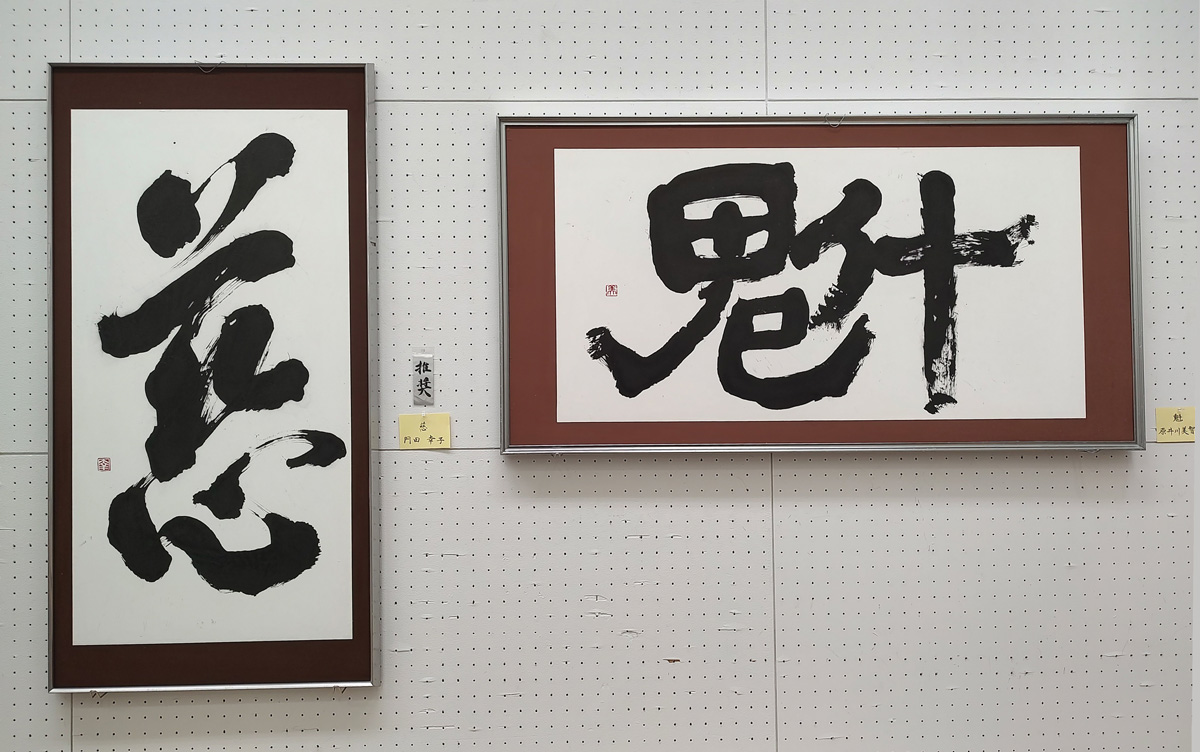 慈
推奨
慈
阿田 幸子
魁
魁
原井川美智